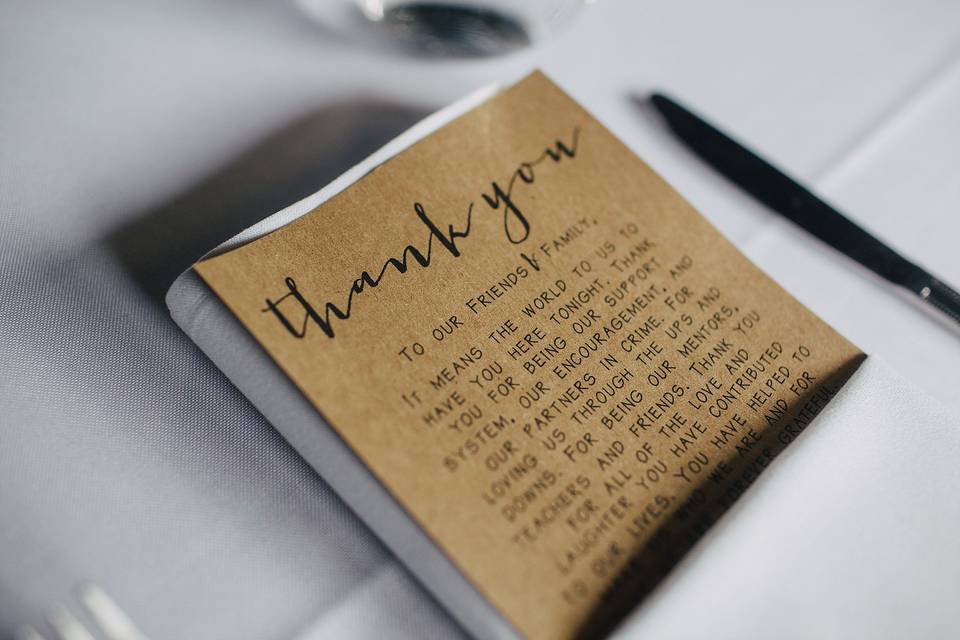 thank you
TO OUR FRIENDS & FAMILY,
IT MEANS THE WORLD TO US TO
HAVE YOU HERE TONIGHT. THANK
YOU FOR BEING OUR SUPPORT
SYSTEM, OUR ENCOURAGEMENT, AND
OUR PARTNERS IN CRIME. FOR
LOVING US THROUGH THE UPS AND
DOWNS. FOR BEING OUR MENTORS,
TEACHERS AND FRIENDS. THANK YOU
FOR ALL OF THE LOVE AND
LAUGHTER YOU HAVE CONTRIBUTED
TO OUR LIVES. YOU HAVE HELPED TO
WHO WE ARE AND FOR
FOREVER GRATEFUL.